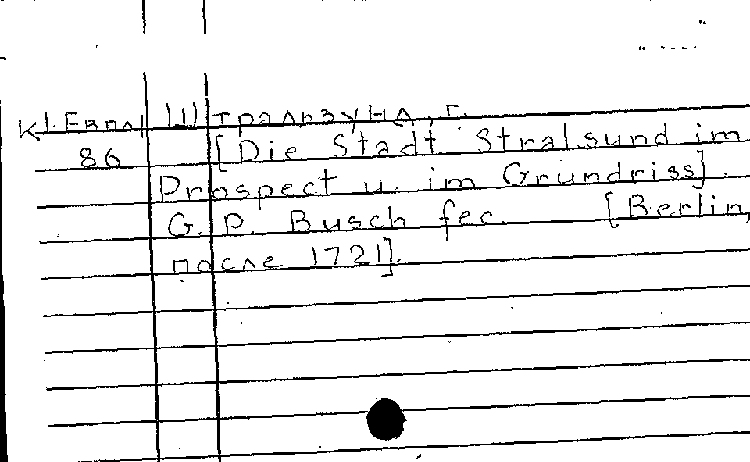 К 1-Европ Штральзунд, г.
86 [Die Stadt Stralsund im
Prospect u. im Grundriss].
G. P. Busch fec. [Berlin,
после 1721].